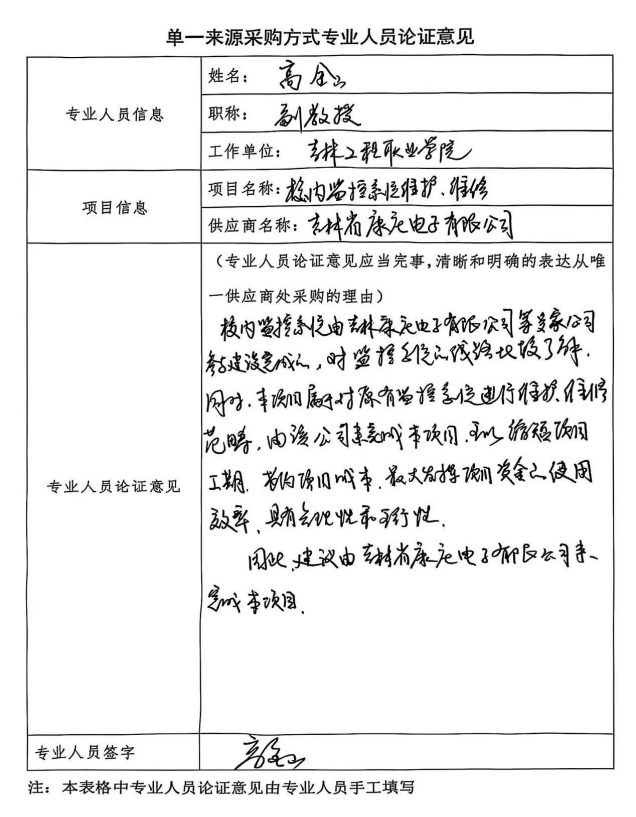 单一来源采购方式专业人员论证意见
专业人员信息
姓名：高金山
职称：副教授
工作单位：吉林工程职业学院
项目信息
项目名称：校内监控系统维护、维修
供应商名称：吉林省康宏电子有限公司
专业人员论证意见
（专业人员论证意见应当完事，清晰和明确的表达从唯
一供应商处采购的理由）
校内监控系统由吉林康宏电子有限公司等多家公司
参与建设完成的，对监控系统的线路比较了解．
同时，本项目属于对原有监控系统进行维护、维修
范畴，由该公司来完成本项目，可以缩短项目
工期，节约项目成本，最大发挥项目资金的使用
效率，具有合理性和可行性．
因此，建议由吉林省康宏电子有限公司来
完成本项目．
专业人员签字
高金山
注：本表格中专业人员论证意见由专业人员手工填写